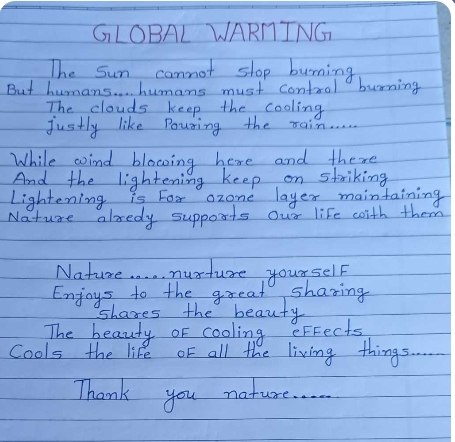 GLOBAL WARMING
The Sun cannot stop burning
But humans....humans must control burning
The clouds keep the cooling
justly like Pouring the rain.....
While wind blowing here and there
And the lightening keep on striking
Lightening is For ozone layer maintaining
Nature alredy supports our life with them
Nature.....nurture yourself
Enjoys to the great sharing
shares the beauty
The beauty of cooling effects
Cools the life of all the living things......
Thank you nature.....